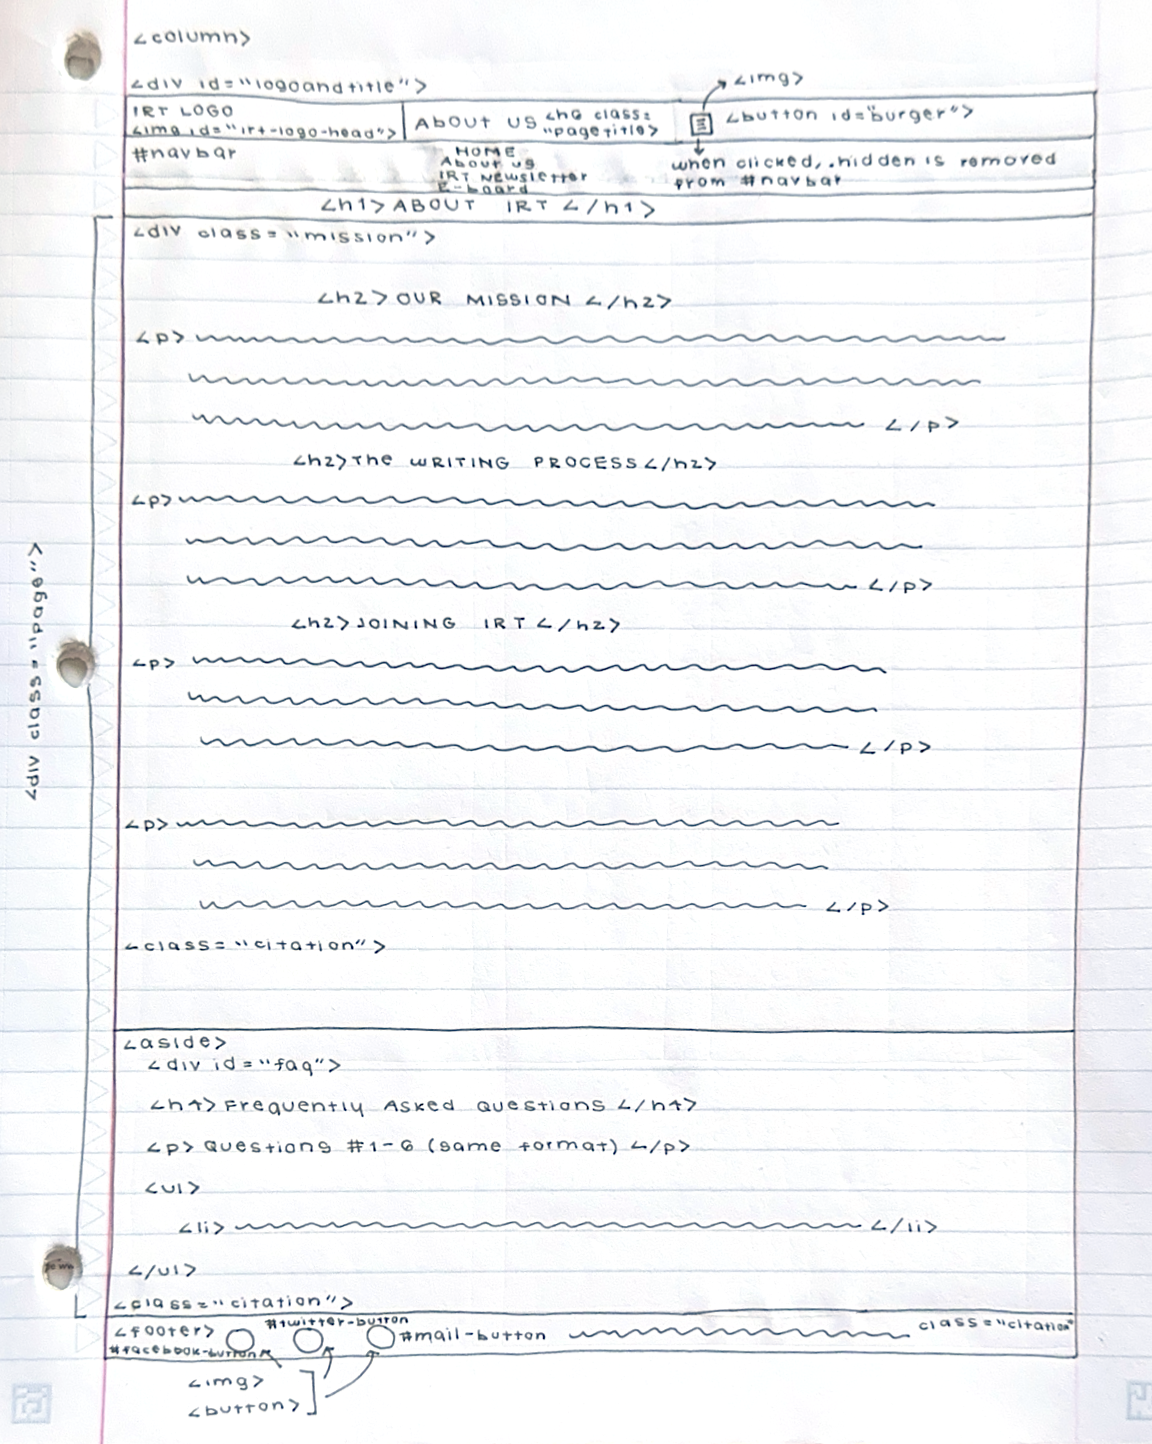 <column>
<div id="logoandtitle">
<img>
IRT LOGO
<img id="irt-logo-head">
ABOUT US <h6 class=
"pagetitle>
<button id="burger">
#navbar
HOME
About us
IRT Newsletter
E-board
when clicked, .hidden is removed
from #navbar
<h1>ABOUT IRT </h1>
<div class="page">
<div class="mission">
<h2>OUR MISSION </h2>
<p>
</p>
<h2>The WRITING PROCESS</h2>
<p>
</p>
<h2>JOINING IRT</h2>
<p>
</p>
<p>
</p>
<class="citation">
<aside>
<div id="faq">
<h4>Frequently Asked Questions </h4>
<p> Questions #1-6 (same format) </p>
<ul>
<li> </li>
</ul>
<class="citation">
<footer>
#facebook-button
#twitter-button
#mail-button
class="citation"
<img>
<button>